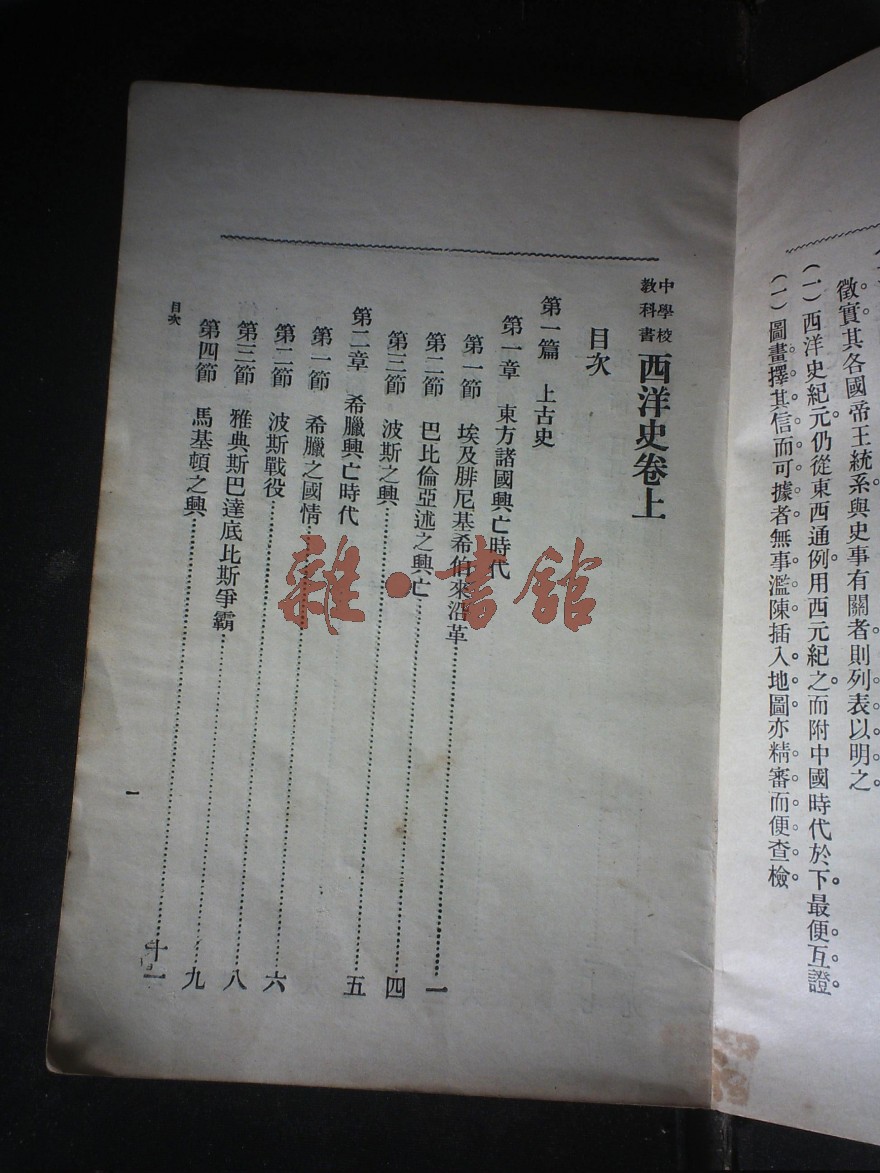 徵實其各國帝王統系與史事有關者則列表以明之
(一)西洋史紀元仍從東西通例用西元紀之而附中國時代於下最便互證
(一)圖畫擇其信而可據者無事濫陳插入地圖亦精審而便查檢
中學校
教科書
西洋史卷上
目次
第一篇 上古史
第一章 東方諸國興亡時代
第一節 埃及腓尼基希伯來沿革……一
第二節 巴比倫亞述之興亡……四
第三節 波斯之興……五
第二章 希臘興亡時代
第一節 希臘之國情……六
第二節 波斯戰役……八
第三節 雅典斯巴達底比斯爭霸……九
第四節 馬基頓之興……十一
目次
一
雜·書館